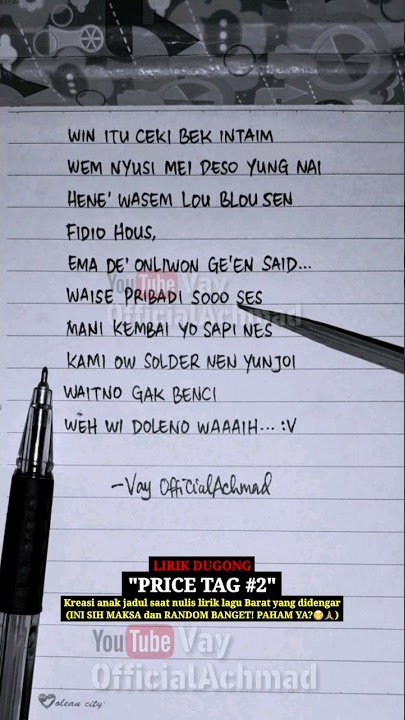 WIN ITU CEKI BEK INTAIM
WEM NYUSI MEI DESO YUNG NAI
HENE' WASEM LOU BLOU SEN
FIDIO HOUS,
EMA DE' ONLIWON GE'EN SAID...
YouTube Vay
WAISE PRIBADI SOOO SES
OfficialAchmad
MANI KEMBAI YO SAPI NES
KAMI OW SOLDER NEN YUNJOI
WAITNO GAK BENCI
WEH WI DOLENO WAAAIH... :V
-Vay OfficialAchmad
LIRIK DUGONG
"PRICE TAG #2"
Kreasi anak jadul saat nulis lirik lagu Barat yang didengar
(INI SIH MAKSA dan RANDOM BANGET! PAHAM YA?😳🙏)
YouTube Vay
OfficialAchmad
olean city